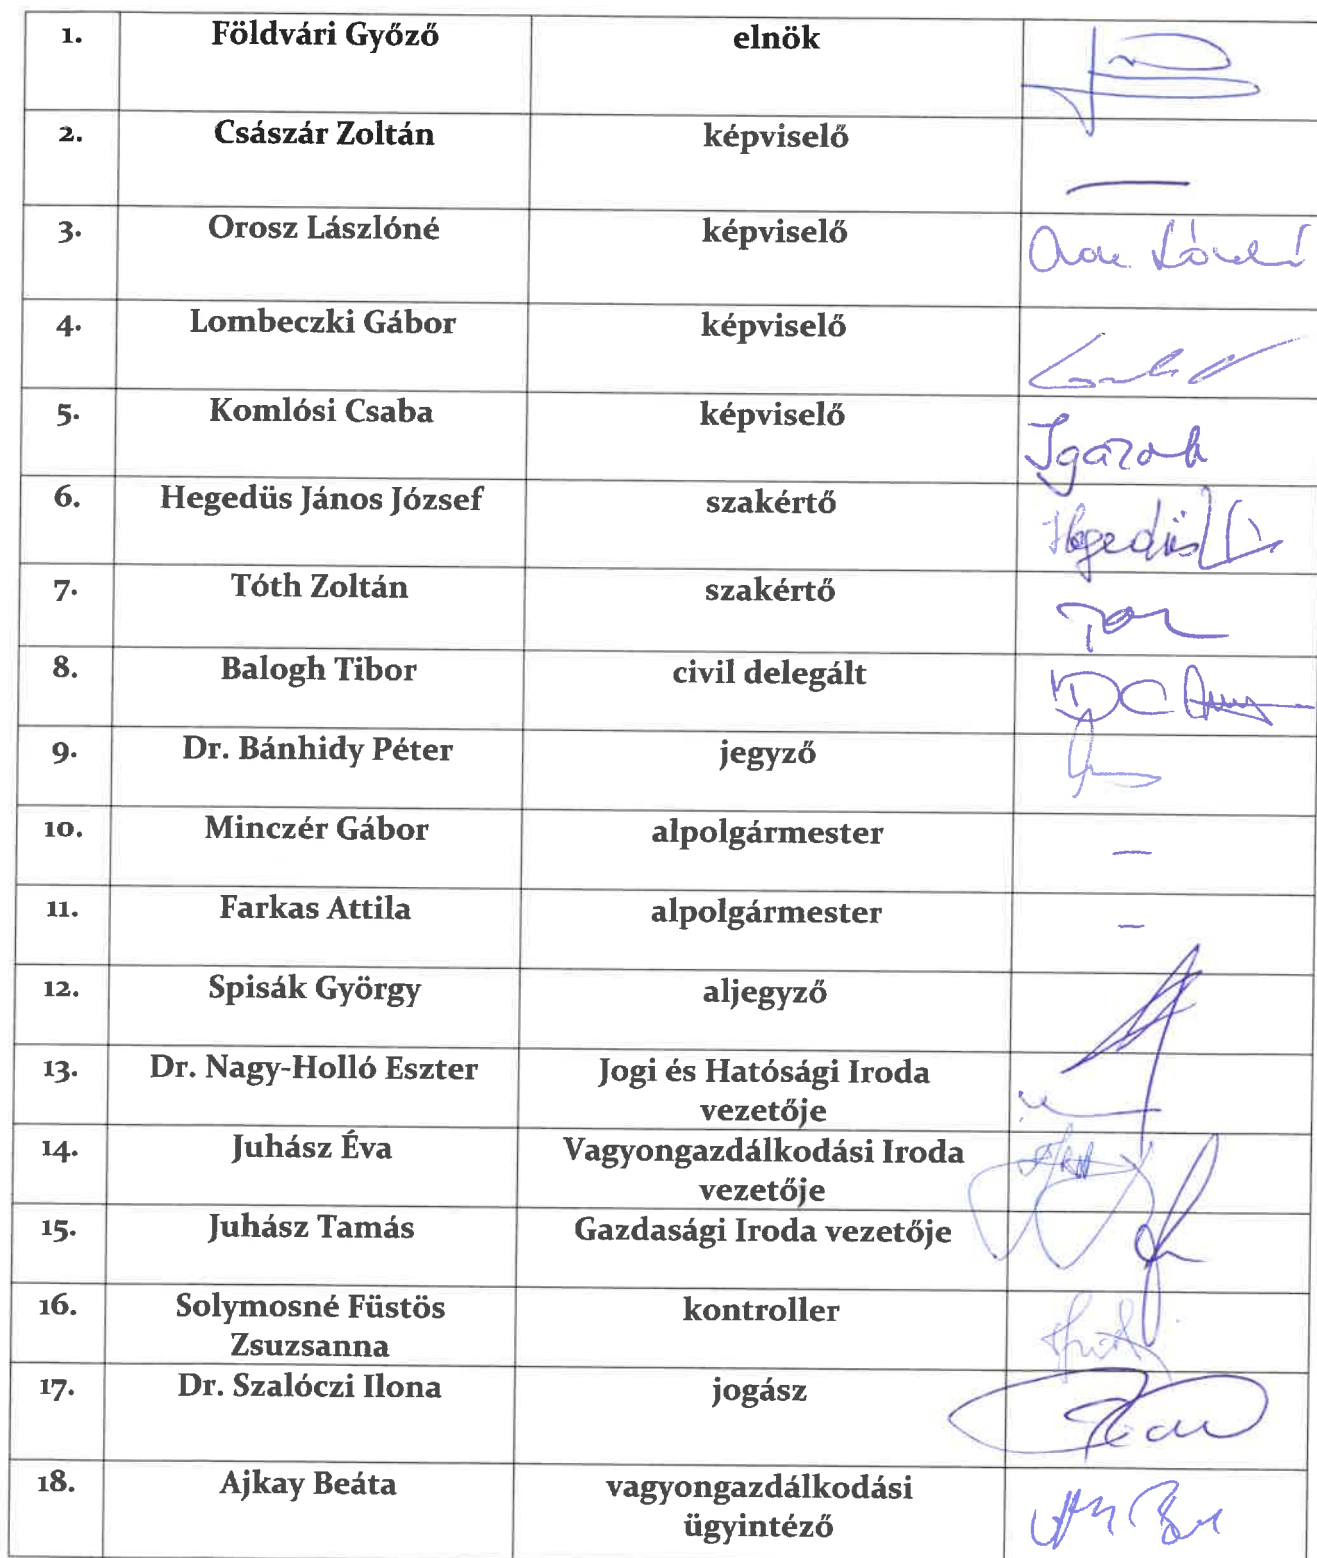 1. Földvári Győző elnök
2. Császár Zoltán képviselő
—
3. Orosz Lászlóné képviselő
4. Lombeczki Gábor képviselő
5. Komlósi Csaba képviselő
Igazolt
6. Hegedüs János József szakértő
Hegedüs
7. Tóth Zoltán szakértő
8. Balogh Tibor civil delegált
9. Dr. Bánhidy Péter jegyző
10. Minczér Gábor alpolgármester
—
11. Farkas Attila alpolgármester
—
12. Spisák György aljegyző
13. Dr. Nagy-Holló Eszter Jogi és Hatósági Iroda
vezetője
14. Juhász Éva Vagyongazdálkodási Iroda
vezetője
15. Juhász Tamás Gazdasági Iroda vezetője
16. Solymosné Füstös kontroller
Zsuzsanna
17. Dr. Szalóczi Ilona jogász
18. Ajkay Beáta vagyongazdálkodási
ügyintéző